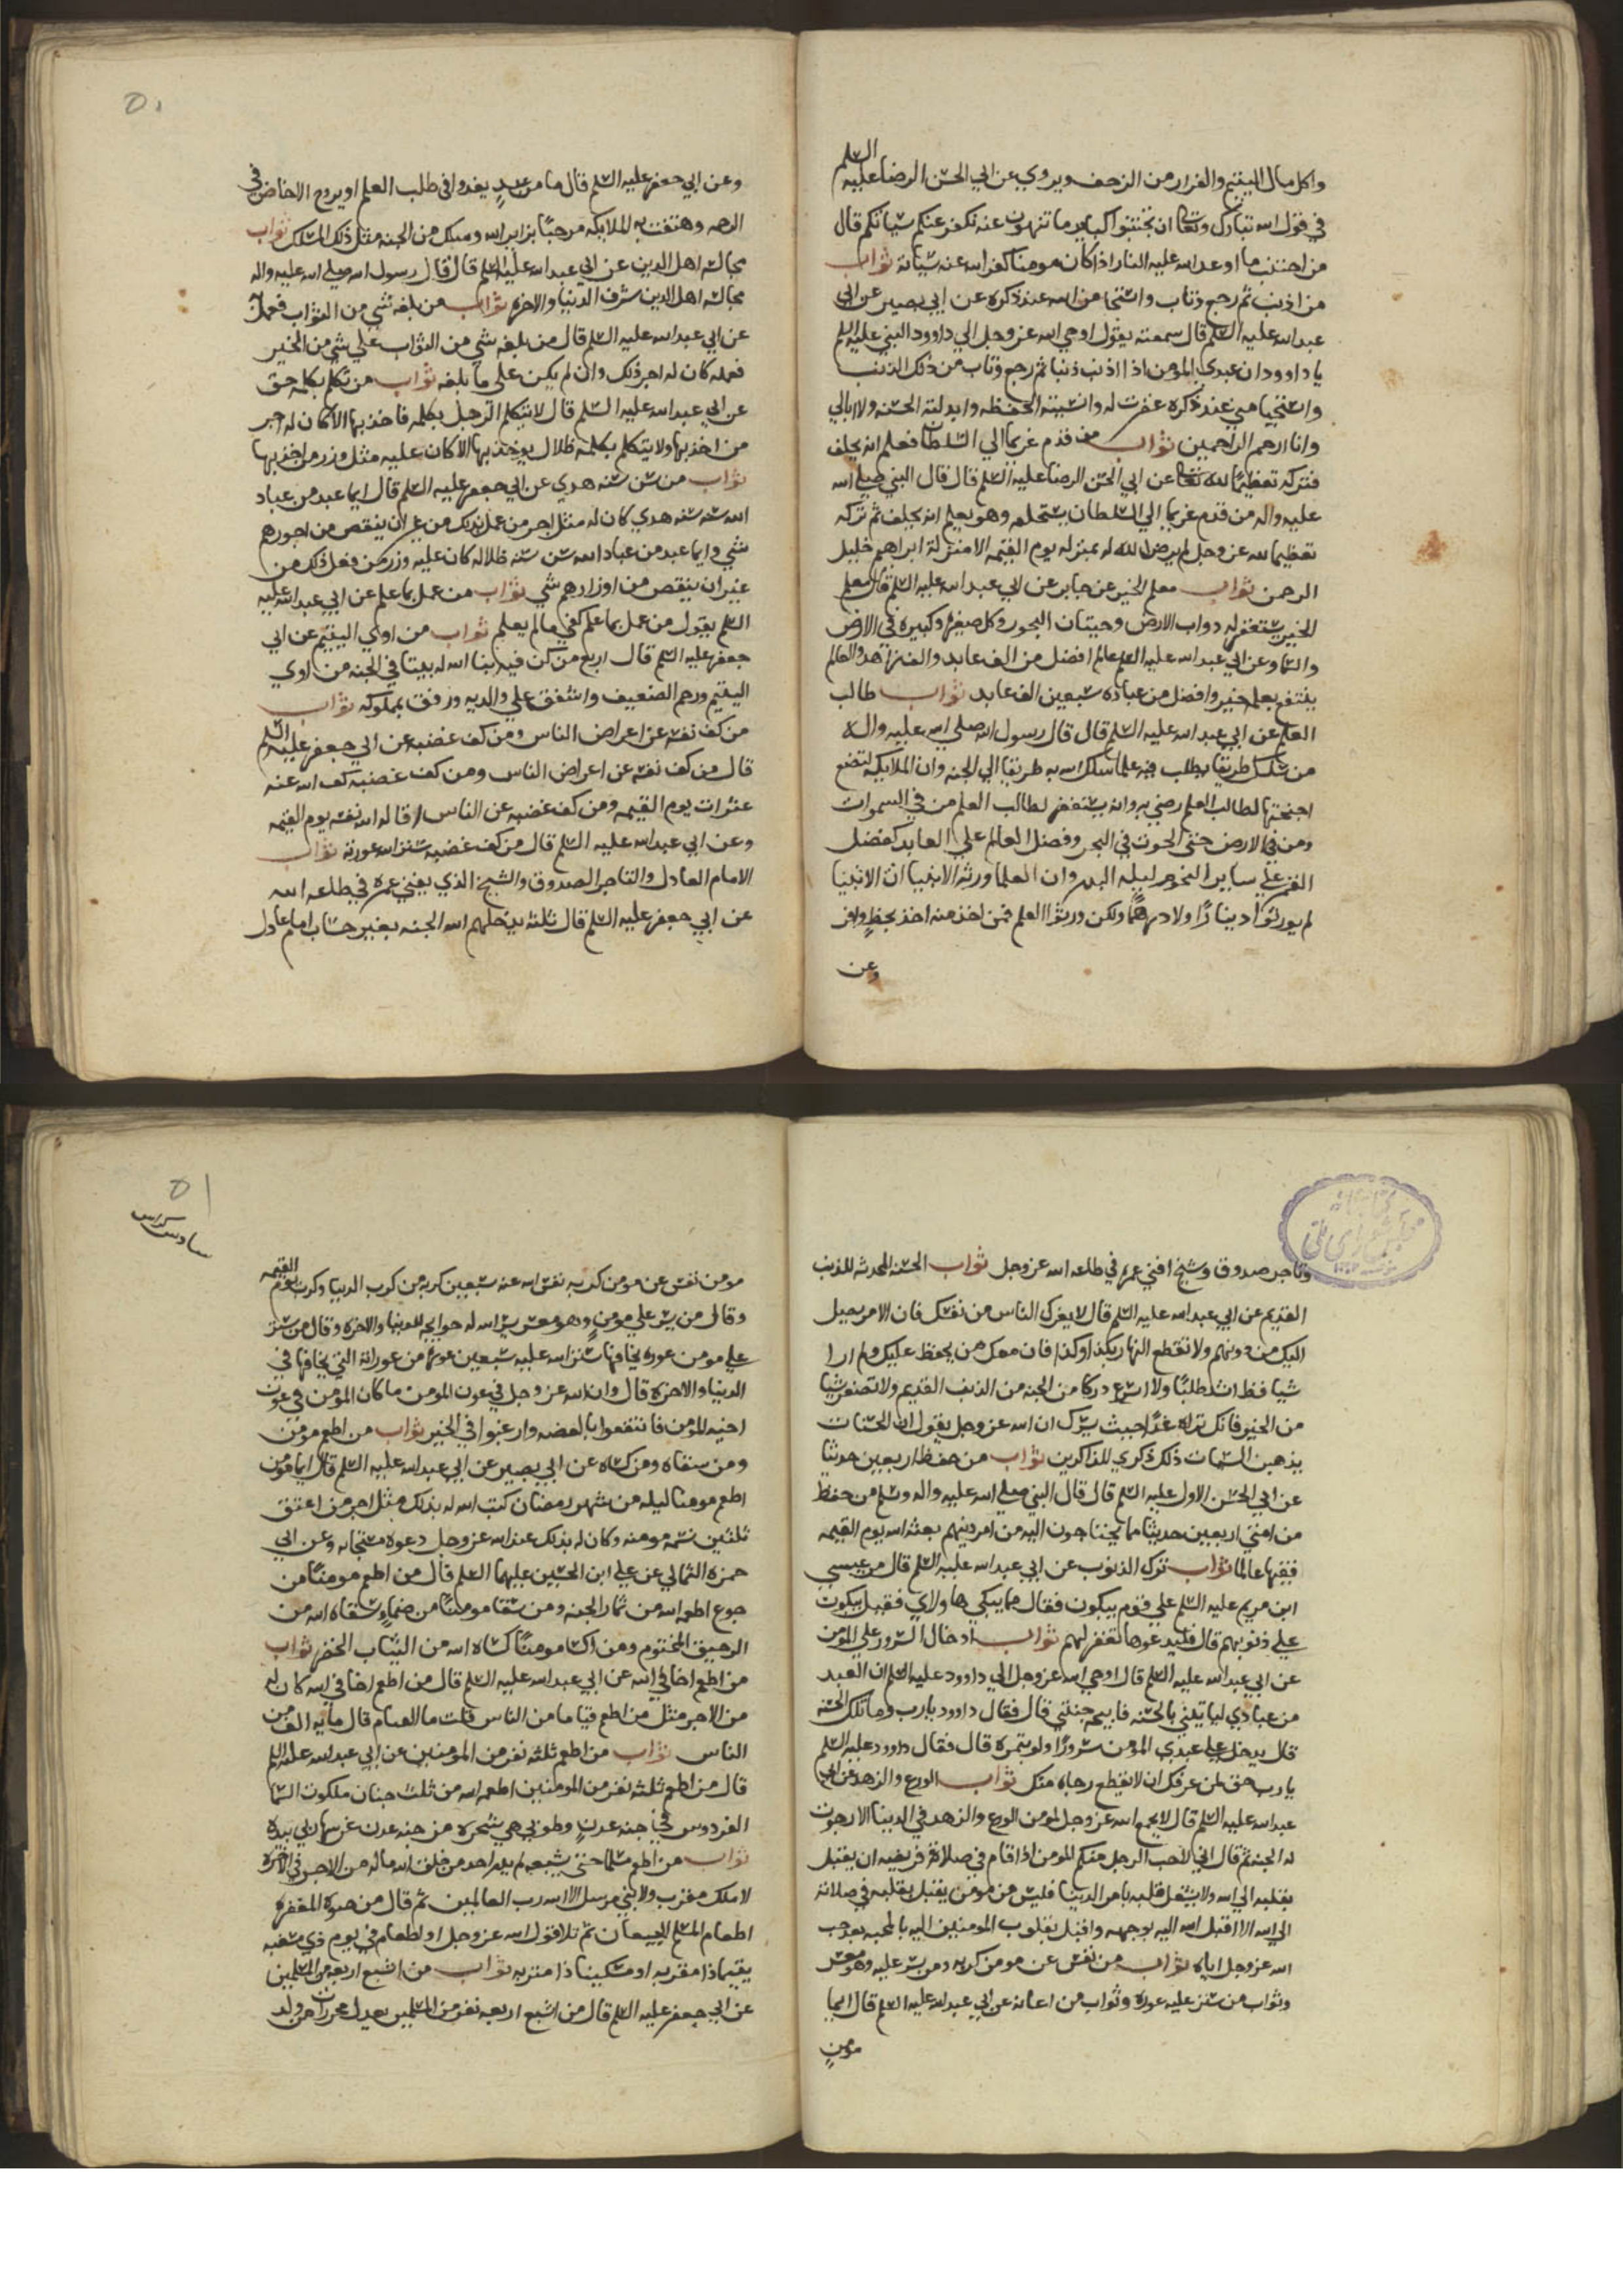 السلم
واكل مال اليتيم والفرار من الزحف ويروي عن ابي الحسن الرضا عليه
في قول اسه تبارك وتعا ان تجتنبوا كباير ما تنهون عنه نكفر عنكم سياتكم قال
من اجتنب ما اوعد اسه عليه النار اذا كان مومنا كفر اسه عنه سياته ثواب
من اذنب ثم رجع وتاب واستحيا من اسه عند ذكره عن ابي بصير عن ابي
عبد اسه عليه السلم قال سمعته يقول اوحي اسه عز وجل الي داوود النبي عليه السلم
يا داوود ان عبدي المومن اذا اذنب ذنبا ثم رجع وتاب من ذلك الذنب
واستحيا مني عند ذكره غفرت له وانسيته الحفظه وابدلته الحسنه ولا ابالي
وانا ارحم الراحمين ثواب من قدم غريما الي السلطان فعلم انه يحلف
فتركه تعظيما لله تعا عن ابي الحسن الرضا عليه السلم قال قال النبي صلي اسه
عليه واله من قدم غريما الي السلطان يستحلفه وهو يعلم انه يحلف ثم تركه
تعظيما لله عز وجل لم يرض الله له بمنزله يوم القيمه الا منزلة ابراهيم خليل
الرحمن ثواب معلم الخير عن جابر عن ابي عبد اسه عليه السلم قال معلم
الخير يستغفر له دواب الارض وحيتان البحور وكل صغيره وكبيره في الارض
والسما وعن ابي عبد اسه عليه السلم عالم افضل من الف عابد والف زاهد والعالم
ينتفع بعلمه خير وافضل من عباده سبعين الف عابد ثواب طالب
العلم عن ابي عبد اسه عليه السلم قال قال رسول اسه صلي اسه عليه واله
من سلك طريقا يطلب فيه علما سلك اسه به طريقا الي الجنه وان الملايكه لتضع
اجنحتها لطالب العلم رضي به وانه يستغفر لطالب العلم من في السموات
ومن في الارض حتي الحوت في البحر وفضل العالم علي العابد كفضل
القمر علي ساير النجوم ليله البدر وان العلما ورثه الانبيا ان الانبيا
لم يورثوا دينارًا ولا درهمًا ولكن ورثوا العلم فمن اخذ منه اخذ بحظٍ وافر
وعن
٥٠
وعن ابي جعفر عليه السلم قال ما من عبدٍ يغدوا في طلب العلم او يروح الا خاض في
الرحمه وهتفت به الملايكه مرحبًا بزاير اسه وسلك من الجنه مثل ذلك المسلك ثواب
مجالسه اهل الدين عن ابي عبد اسه عليه السلم قال قال رسول اسه صلي اسه عليه واله
مجالسه اهل الدين شرف الدنيا والاخره ثواب من بلغه شي من الثواب فعمله
عن ابي عبد اسه عليه السلم قال من بلغه شي من الثواب علي شي من الخير
فعمله كان له اجر ذلك وان لم يكن علي ما بلغه ثواب من تكلم بكلمه حق
عن ابي عبد اسه عليه السلم قال لا يتكلم الرجل بكلمه فاخذ بها الا كان له اجر
من اخذ بها ولا يتكلم بكلمه ظلال يوخذ بها الا كان عليه مثل وزر من اخذ بها
ثواب من سن سنه هدي عن ابي جعفر عليه السلم قال ايما عبد من عباد
اسه سن سنه هدي كان له مثل اجر من عمل بذلك من غير ان ينقص من اجورهم
شي وايما عبد من عباد اسه سن سنه ظلاله كان عليه وزر من فعل ذلك من
غير ان ينقص من اوزارهم شي ثواب من عمل بما علم عن ابي عبد اسه عليه
السلم يقول من عمل بما علم كفي ما لم يعلم ثواب من اوي اليتيم عن ابي
جعفر عليه السلم قال اربع من كن فيه بنا اسه له بيتا في الجنه من اوي
اليتيم ورحم الضعيف واشفق علي والديه ورفق بمملوكه ثواب
من كف نفسه عن اعراض الناس ومن كف غضبه عن ابي جعفر عليه السلم
قال من كف نفسه عن اعراض الناس ومن كف غضبه كف اسه عنه
عثرات يوم القيمه ومن كف غضبه عن الناس اقاله اسه نفسه يوم القيمه
وعن ابي عبد اسه عليه السلم قال من كف غضبه ستر اسه عورته ثواب
الامام العادل والتاجر الصدوق والشيخ الذي يفني عمره في طاعه اسه
عن ابي جعفر عليه السلم قال ثلثه يدخلهم اسه الجنه بغير حساب امام عادل
وتاجر صدوق وشيخ افني عمره في طاعه اسه عز وجل ثواب الحسنه المحدثه للذنب
القديم عن ابي عبد اسه عليه السلم قال لا يغرك الناس من نفسك فان الامر يصل
اليك من دونهم ولا تقطع النهار بكذا وكذا فان معك من يحفظ عليك ولم ارا
شيا قط اشد طلبًا ولا اسرع دركا من الحسنه من الذنب القديم ولا تصغر شيا
من الخير فانك تراه غدًا حيث يسرك ان اسه عز وجل يقول ان الحسنات
يذهبن السيات ذلك ذكري للذاكرين ثواب من حفظ اربعين حديثا
عن ابي الحسن الاول عليه السلم قال قال النبي صلي اسه عليه واله وسلم من حفظ
من امتي اربعين حديثا مما يحتاجون اليه من امر دينهم بعثه اسه يوم القيمه
فقيها عالما ثواب ترك الذنوب عن ابي عبد اسه عليه السلم قال مر عيسي
ابن مريم عليه السلم علي قوم يبكون فقال مما يبكي هاولاي فقيل يبكون
علي ذنوبهم قال فليدعوها تغفر لهم ثواب ادخال السرور علي المومن
عن ابي عبد اسه عليه السلم قال اوحي اسه عز وجل الي داوود عليه السلم ان العبد
من عبادي لياتيني بالحسنه فابيحه جنتي قال فقال داوود يارب وما تلك الحسنه
قال يدخل علي عبدي المومن سرورًا ولو بتمره قال فقال داوود عليه السلم
يارب حق لمن عرفك ان لا يقطع رجاه منك ثواب الورع والزهد عن ابي
عبد اسه عليه السلم قال لا يجمع اسه عز وجل لمومن الورع والزهد في الدنيا الا رجوت
له الجنه ثم قال اني لاحب الرجل منكم المومن اذا قام في صلاة فريضه ان يقبل
بقلبه الي اسه ولا يشغل قلبه بامر الدنيا فليس من مومن يقبل بقلبه في صلاته
الي اسه الا اقبل اسه اليه بوجهه واقبل بقلوب المومنين اليه بالمحبه بعد حب
اسه عز وجل اياه ثواب من نفس عن مومن كربه ومن يسر عليه وهو معسر
وثواب من ستر عليه عوره وثواب من اعانه عن ابي عبد اسه عليه السلم قال ايما
مومنٍ
٥١
سادس كراس
مومن نفس عن مومن كربه نفس اسه عنه سبعين كربه من كرب الدنيا وكرب يوم القيمه
وقال من يسر علي مومنٍ وهو معسر يسر اسه له حوايجه للدنيا والاخره وقال من ستر
علي مومن عوره يخافها ستر اسه عليه سبعين عوره من عوراته التي يخافها في
الدنيا والاخره قال وان اسه عز وجل في عون المومن ما كان المومن في عون
اخيه المومن فانتفعوا بالعضه وارغبوا في الخير ثواب من اطعم مومن
ومن سقاه ومن كساه عن ابي بصير عن ابي عبد اسه عليه السلم قال ايما مومن
اطعم مومنا ليله من شهر رمضان كتب اسه له بذلك مثل اجر من اعتق
ثلثين نسمه مومنه وكان له بذلك عند اسه عز وجل دعوه مستجابه وعن ابي
حمزه الثمالي عن علي ابن الحسين عليهما السلم قال من اطعم مومنًا من
جوع اطعمه اسه من ثمار الجنه ومن سقا مومنًا من ضماءٍ سقاه اسه من
الرحيق المختوم ومن اكسا مومنًا كساه اسه من الثياب الخضر ثواب
من اطعم اخا في اسه عن ابي عبد اسه عليه السلم قال من اطعم اخا في اسه كان له
من الاجر مثل من اطعم فياما من الناس قلت ما الفيام قال مايه الف من
الناس ثواب من اطعم ثلثه نفر من المومنين عن ابي عبد اسه عليه السلم
قال من اطعم ثلثه نفر من المومنين اطعمه اسه من ثلث جنان ملكوت السما
الفردوس في جنه عدنٍ وطوبي هي شجره من جنه عدن غرسها ربي بيده
ثواب من اطعم مسلما حتي يشبعه لم يدر احد من خلق اسه ماله من الاجر في الاخره
لا ملك مقرب ولا نبي مرسل الا اسه رب العالمين ثم قال من موجبات المغفره
اطعام المسلم السغبان ثم تلا قول اسه عز وجل او اطعام في يوم ذي مسغبه
يتيما ذا مقربه او مسكينا ذا متربه ثواب من اشبع اربعه من المسلمين
عن ابي جعفر عليه السلم قال من اشبع اربعه نفر من المسلمين يعدل محررات من ولد